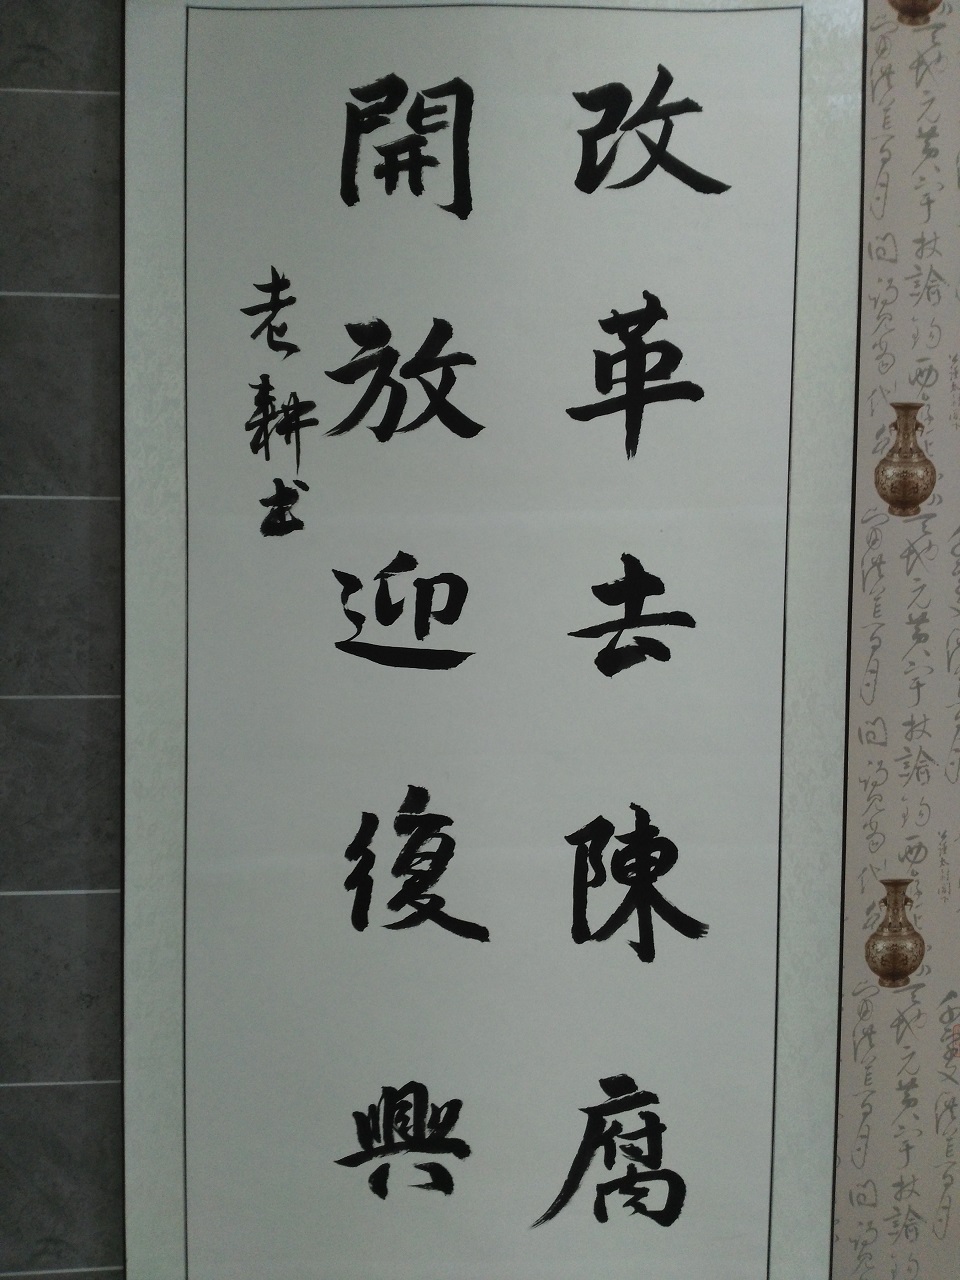 改革去陳腐
開放迎復興
老耕书